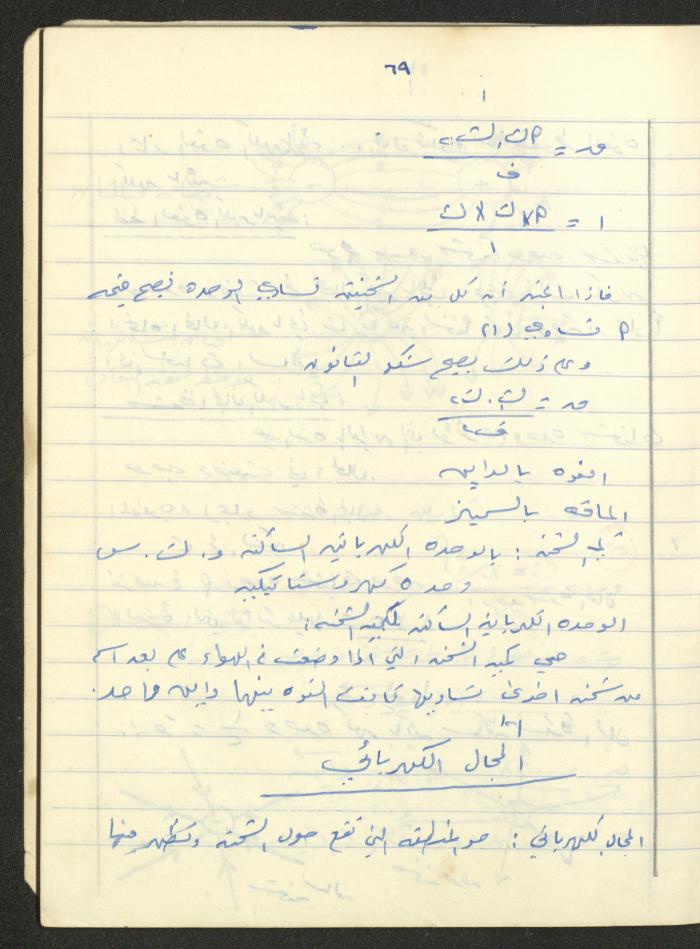 ٦٩
١
ق = م ك١ ك٢
ف٢
١ = م × ك × ك
١
فاذا اعتبر أن كل من الشحنيتن تساوي الوحده فيصبح قيمه
م تساوي (١)
وعلى ذلك يصبح شكل القانون
ق = ك١ . ك٢
ف٢
القوه بالداين
المسافه بالسمتيز
كميه الشحنه : بالوحده الكهربائيه الساكنه و . ك . س
وحده كهروستاتيكيه
الوحده الكهربائيه الساكنه لكميه الشحنه :
هي كميه الشحنه التي اذا وضعت في الهواء على بعد ١سم
من شحنه اخرى تساويها كانت القوه بينهما داين واحد .
المجال الكهربائي
المجال الكهربائي : هو المنطقه التي تقع حول الشحنه وتظهر فيها